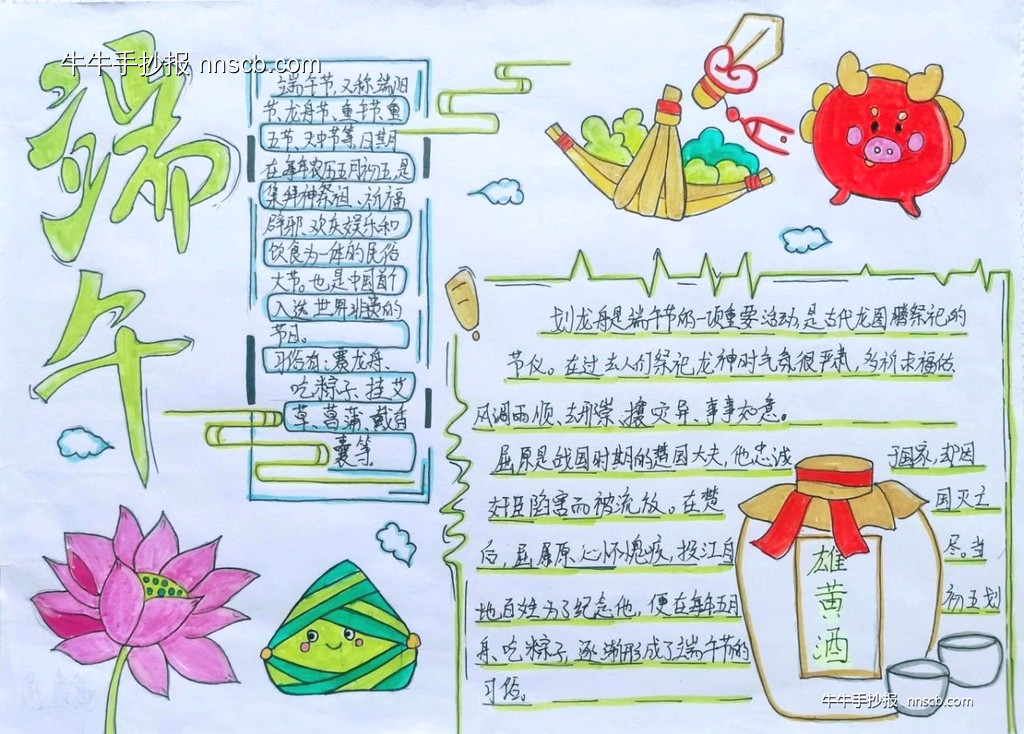 牛牛手抄报 nnscb.com
端午
端午节,又称端阳
节、龙舟节、重午节、重
五节、天中节等,日期
在每年农历五月初五,是
集拜神祭祖、祈福
辟邪、欢庆娱乐和
饮食为一体的民俗
大节。也是中国首个
入选世界非遗的
节日。
习俗有:赛龙舟、
吃粽子、挂艾
草、菖蒲、戴香
囊等
划龙舟是端午节的一项重要活动,是古代龙图腾祭祀的
节仪。在过去人们祭祀龙神时气氛很严肃,多祈求福佑
风调雨顺、去邪祟、攘灾异、事事如意。
屈原是战国时期的楚国大夫,他忠诚于国家,却因
奸臣陷害而被流放。在楚国灭亡
后,屈原心怀愧疚,投江自尽。当
地百姓为了纪念他,便在每年五月初五划
舟、吃粽子,逐渐形成了端午节的
习俗。
雄黄酒
牛牛手抄报 nnscb.com